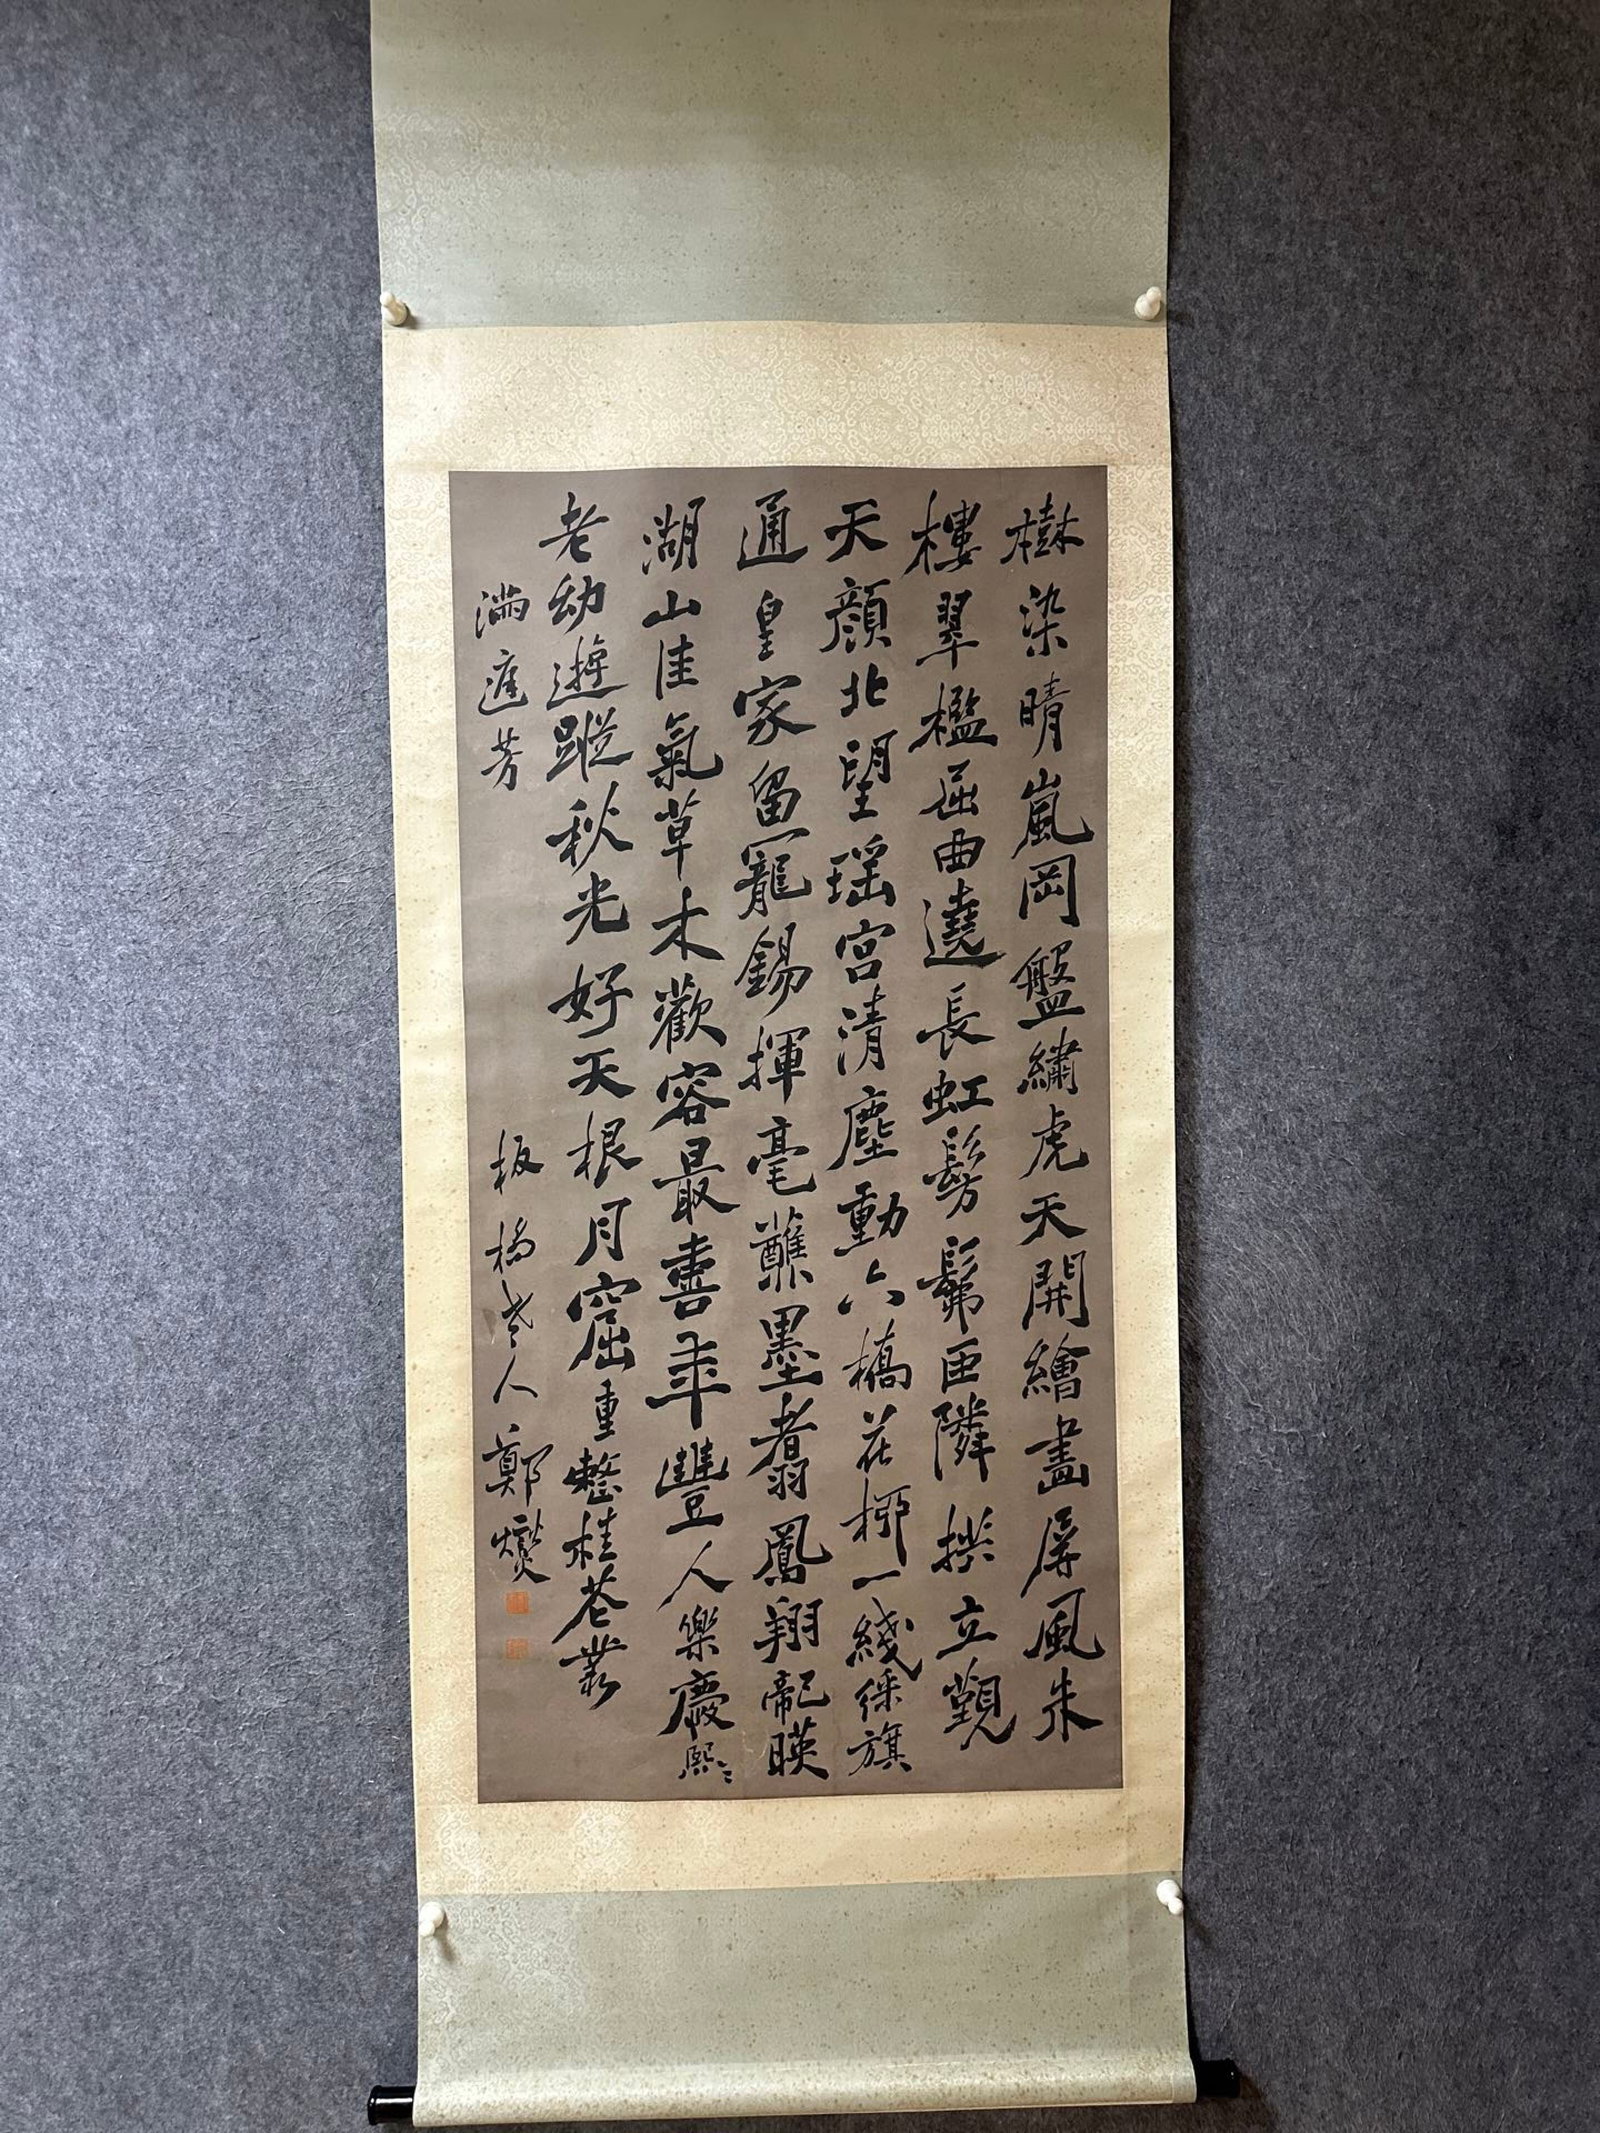 樹染晴嵐岡盤繡虎天開繪畫屏風朱
樓翠檻屈曲遶長虹髣髴臣隣拱立觀
天顏北望瑤宮清塵動六橋花柳一綫綵旗
通皇家留寵錫揮毫蘸墨翥鳳翔龍暎
湖山佳氣草木歡容最喜年豐人樂慶熙〻
老幼遊蹤秋光好天根月窟重整桂花叢
滿庭芳
板橋老人鄭燮